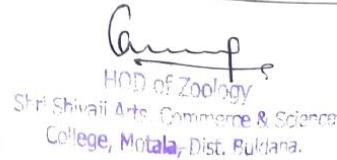 HOD of Zoology
Shri Shivaji Arts, Commerce & Science
College, Motala, Dist. Buldana.